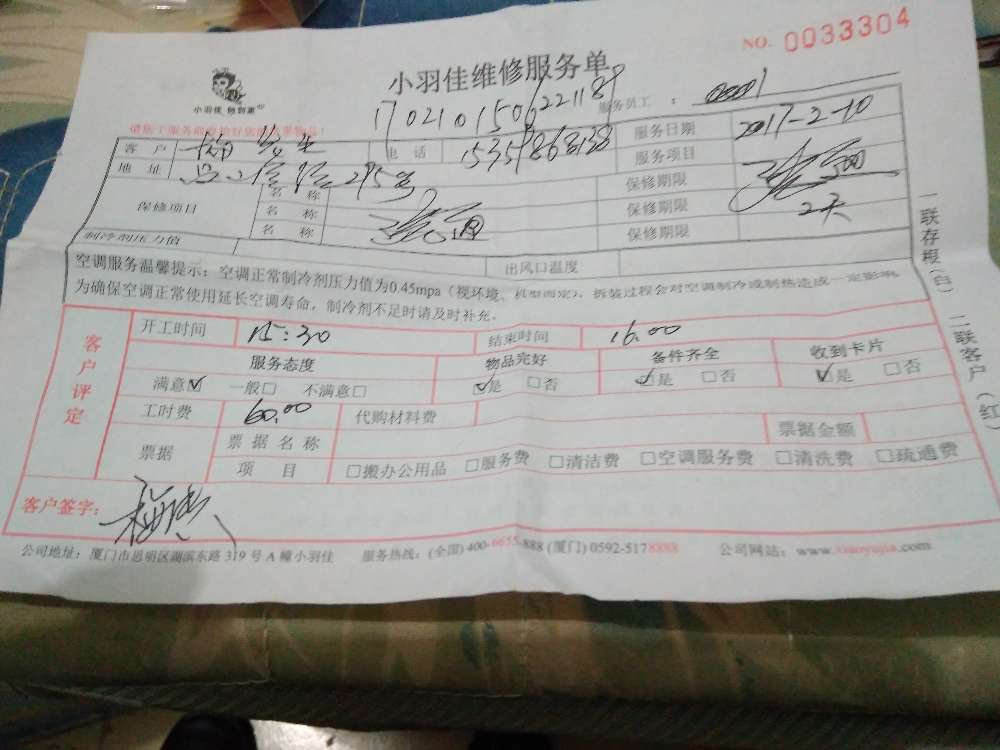 NO. 0033304
小羽佳维修服务单
小羽佳 伸到家
17021015062 21189
服务员工 : 0001
客 户 先生 电 话 服务日期 2017-2-10
地 址 295号 服务项目 疏通
保修项目 名 称 疏通 保修期限 2天
名 称 保修期限
名 称 保修期限
制冷剂压力值 出风口温度
空调服务温馨提示:空调正常制冷剂压力值为0.45mpa(视环境、机型而定)。拆装过程会对空调制冷或制热造成一定影响
为确保空调正常使用延长空调寿命,制冷剂不足时请及时补充。
一联存根(白) 二联客户(红)
客户评定
开工时间 15:30 结束时间 16.00
服务态度 物品完好 备件齐全 收到卡片
满意☑ 一般□ 不满意□ ☑是 □否 ☑是 □否 ☑是 □否
工时费 60.00 代购材料费
票据 票据名称 票据金额
项 目 □搬办公用品 □服务费 □清洁费 □空调服务费 □清洗费 □疏通费
客户签字:
公司地址:厦门市思明区湖滨东路319号A幢小羽佳 服务热线:(全国)400-6655-888 (厦门)0592-5178888 公司网站:www.xiaoyujia.com